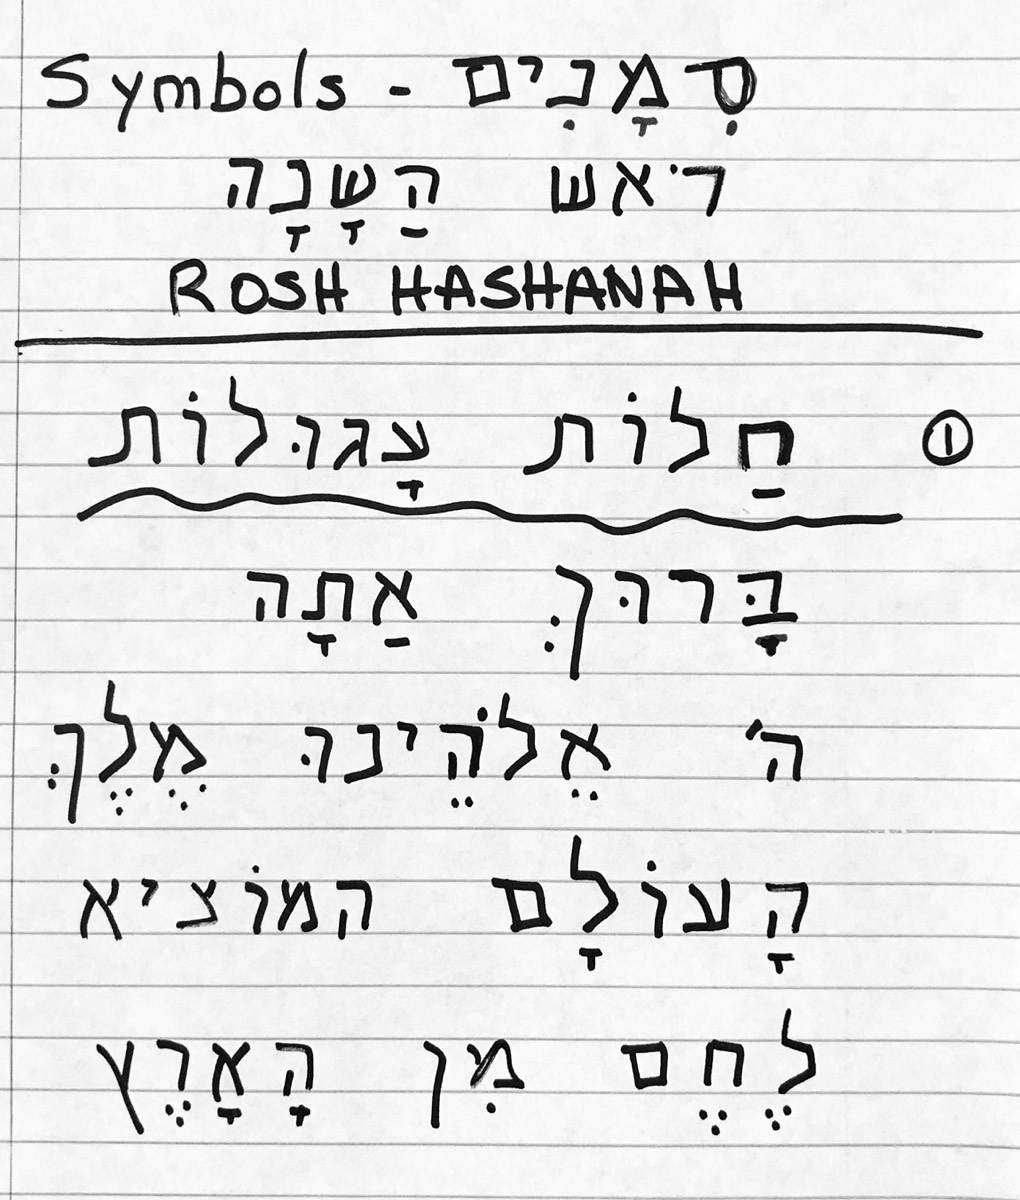 Symbols - סִמָנִים
רֹאש הַשָנָה
ROSH HASHANAH
① חַלוֹת עָגוּלוֹת
בָּרוּךְ אַתָה
ה' אֵלֹהֵינוּ מֶלֶךְ
הָעוֹלָם המוֹציא
לֶחֶם מִן הָאָרֶץ